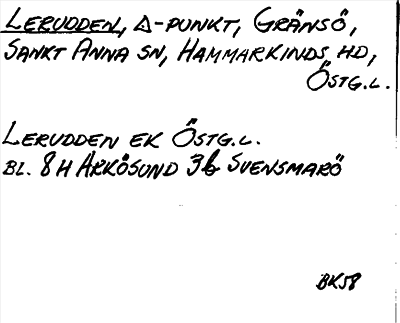 LERUDDEN, Δ-PUNKT, GRÄNSÖ,
SANKT ANNA SN, HAMMARKINDS HD,
ÖSTG.L.
LERUDDEN EK ÖSTG.L.
BL. 8H ARKÖSUND 3b SVENSMARÖ
BK58